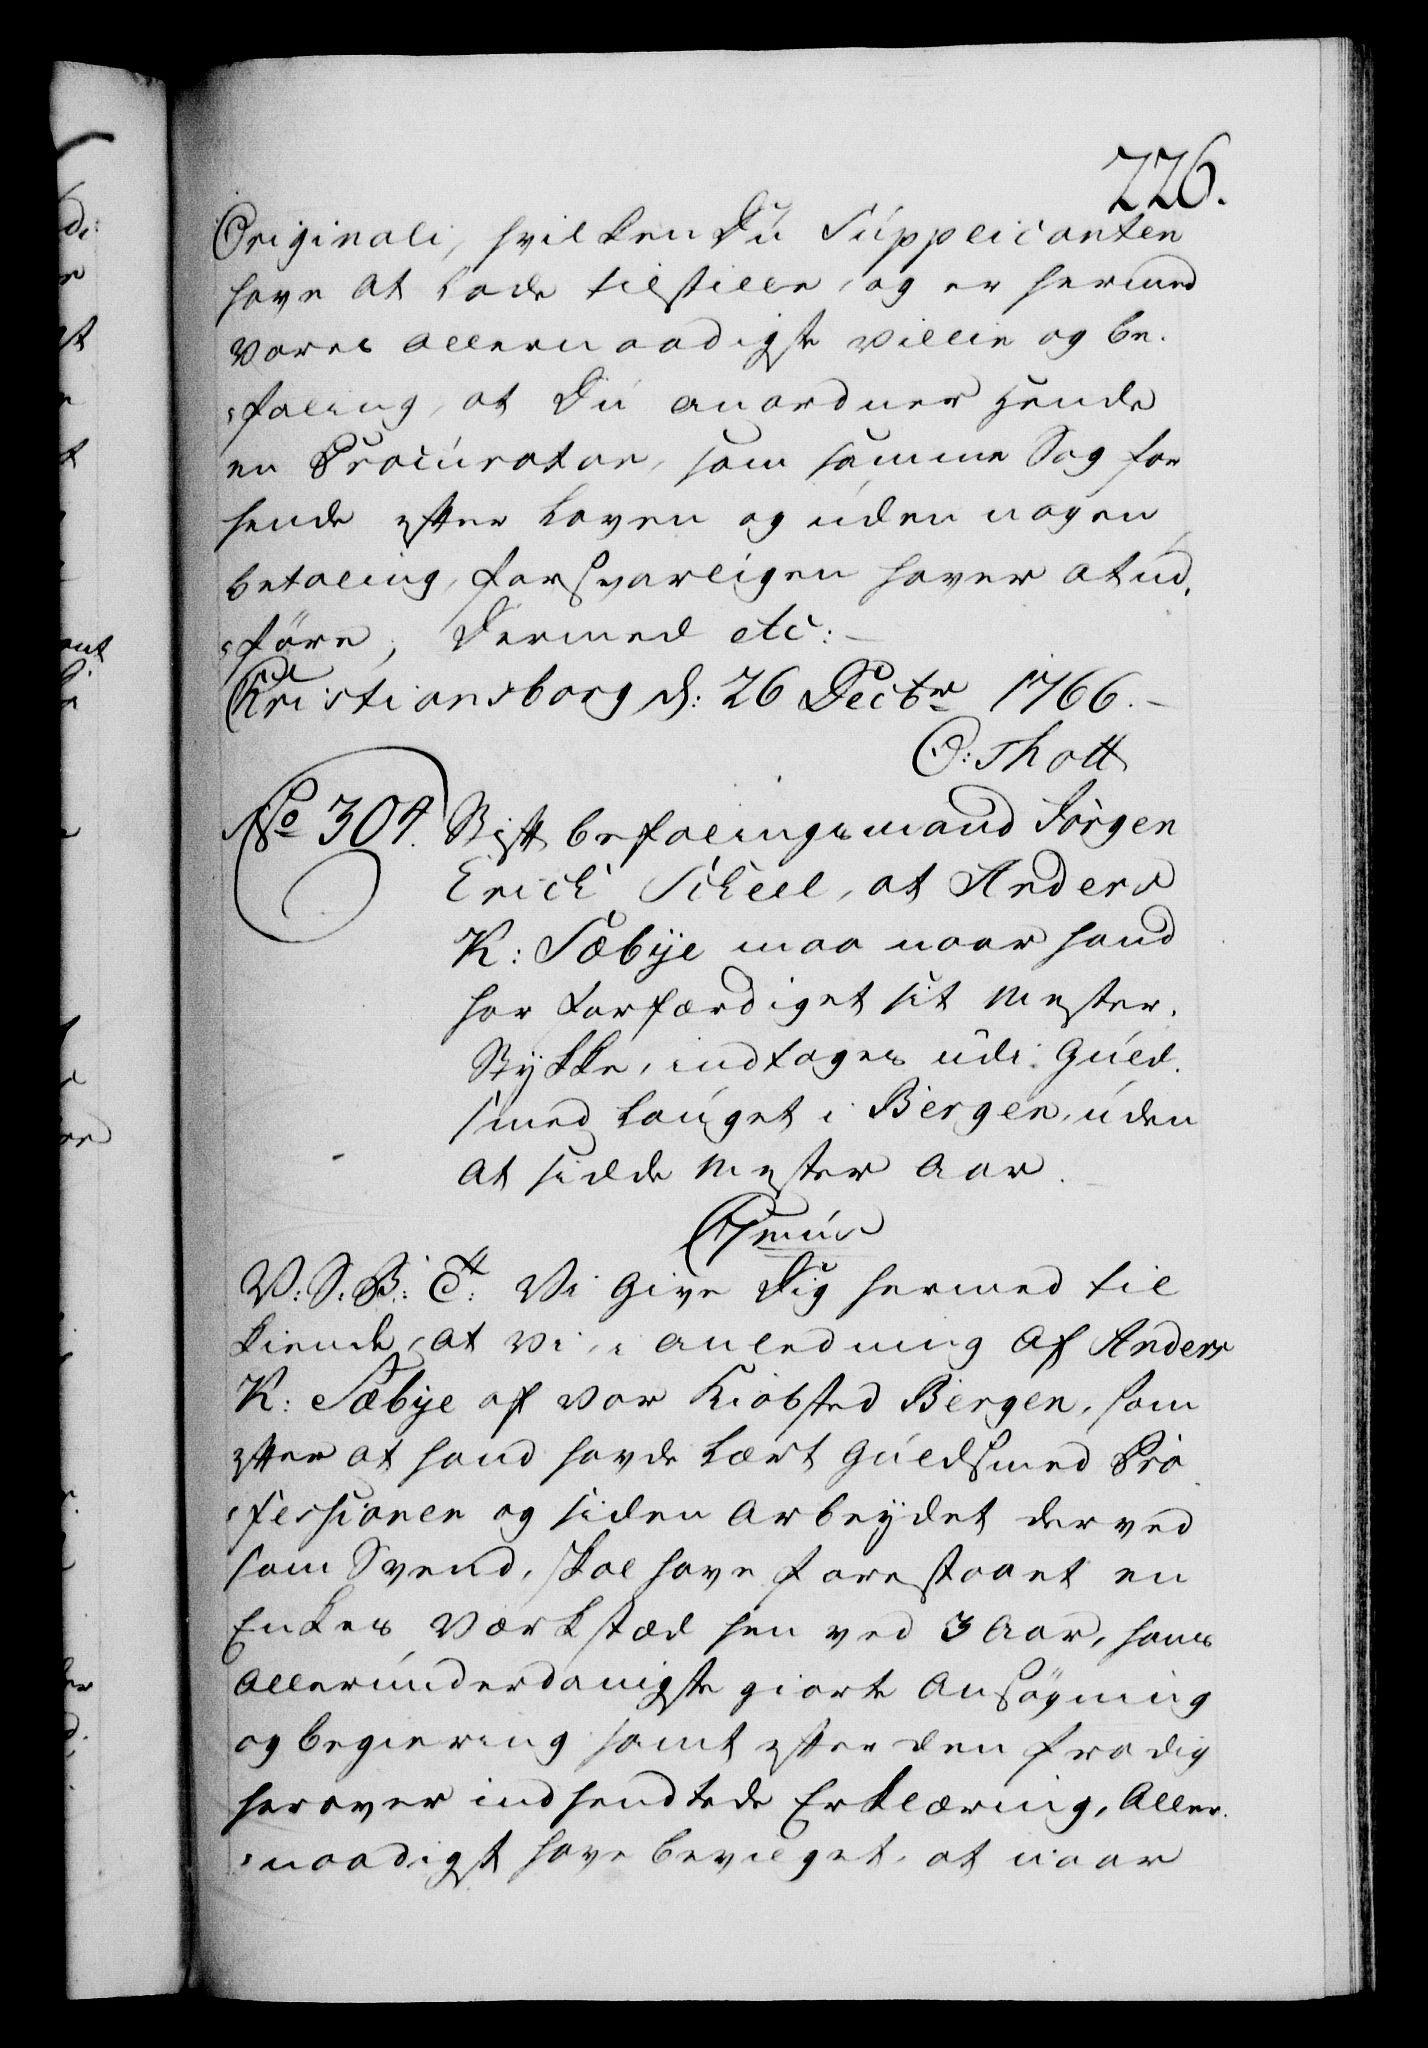 226.
Originali, hvilken Du Supplicanten
have at lade tilstille, og er hermed
vores allernaadigste villie og be-
-faling, at Du anordner hende
en Procurator, som samme Sag for
hende efter Loven og uden nogen
betaling, forsvarligen haver at ud-
-føre, Dermed etc:
Christiansborg d: 26 Decbr 1766.
O: Thott
No 304. Stiftbefalingsmand Jørgen
Erich Scheel, at Anders
K: Sæbye maa naar hand
har forfærdiget sit Mester-
Stykke, indtages udi Guld-
smed Lauget i Bergen, uden
at sidde Mester Aar.
V: S: B: Et: Vi Give Dig hermed til
kiende, at vi, i anledning af Anders
K: Sæbye af vor Kiøbsted Bergen, som
efter at hand havde lært Guldsmed Pro
-fessionen og siden arbeydet derved
som Svend, skal have forestaaet en
Enkes Værkstæd hen ved 3 Aar, hans
allerunderdanigste giorte Ansøgning
og begiering samt efter den fra dig
herover indsendtede Erklæring, Aller-
-naadigst have bevilget, at naar